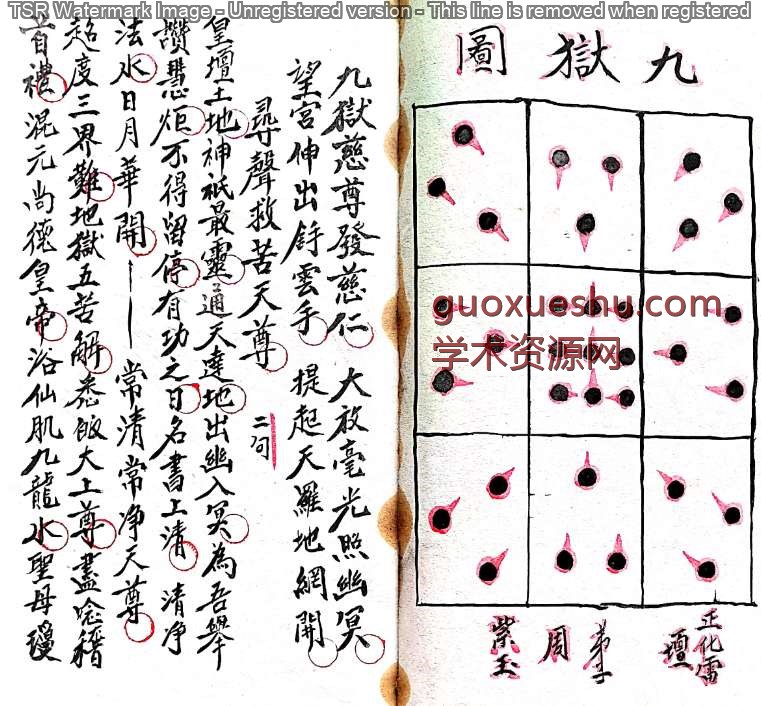 TSR Watermark Image - Unregistered version - This line is removed when registered
九獄圖
guoxueshu.com
学术资源网
正化雷壇
弟子
周
紫玉
九獄慈尊發慈仁 大放毫光照幽冥
望宮伸出鋢雲手 提起天羅地網開
尋聲救苦天尊 二句
皇壇土地神祇最靈通天達地出幽入冥為吾舉
讚慧炬不得留停有功之日名書上清 清净
法水日月華開 常清常净天尊
超度三界難地獄五苦解悉皈大上尊盡念稽
首禮混元尚德皇帝浴仙肌九龍水聖母瓊